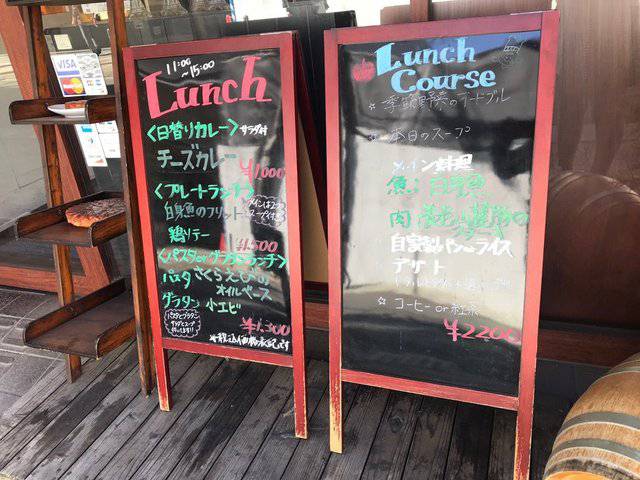 VISA
11:00
~15:00
Lunch
<日替りカレー> サラダ付
チーズカレー
¥1,000
<プレートランチ>
白身魚のフリット
鶏リエー
¥1,500
<パスタorグラタンランチ>
パスタ さくらえびの
オイルベース
グラタン 小エビ
¥1,300
Lunch
Course
☆ 季節野菜のオードブル
☆ 本日のスープ
メイン料理
魚: 白身魚
肉
自家製パンorライス
デザート
☆ コーヒー or 紅茶
¥2200